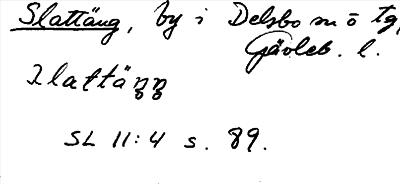 Slättäng, by i Delsbo sn o tg,
Gävleb. l.
SL 11:4 s. 89.